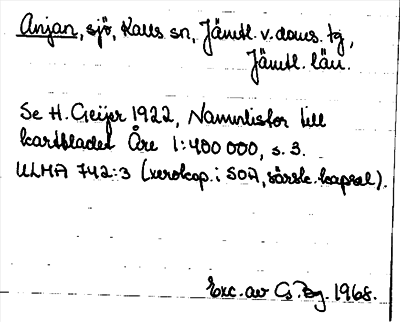 Anjan, sjö, Kalls sn, Jämtl. v. doms. tg,
Jämtl. län.
Se H. Geijer 1922, Namnlistor till
kartbladet Åre 1:400 000, s. 3.
ULMA 742:3 (xerokop. i SOA, särsk. kapsel).
Exc. av
1968.